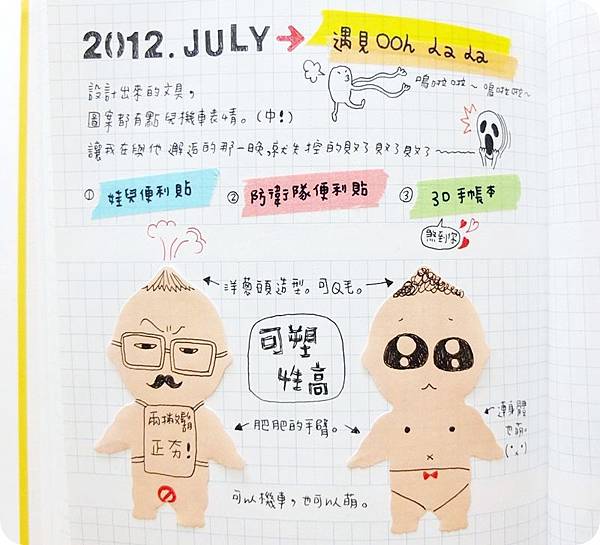 2012.JULY → 遇見OOh La La
嗚啦啦~嗚啦啦~
設計出來的文具,
圖案都有點兒機車表情。(中!)
讓我在與他邂逅的那一晚,就失控的敗了敗了敗了~
① 娃兒便利貼 ② 防衛隊便利貼 ③ 3D手帳本
煞到你
← 洋蔥頭造型。可Q毛。→
可塑
性高
兩撇鬍
正夯!
← 肥肥的手臂。→
連身體
也萌。
可以機車,也可以萌。